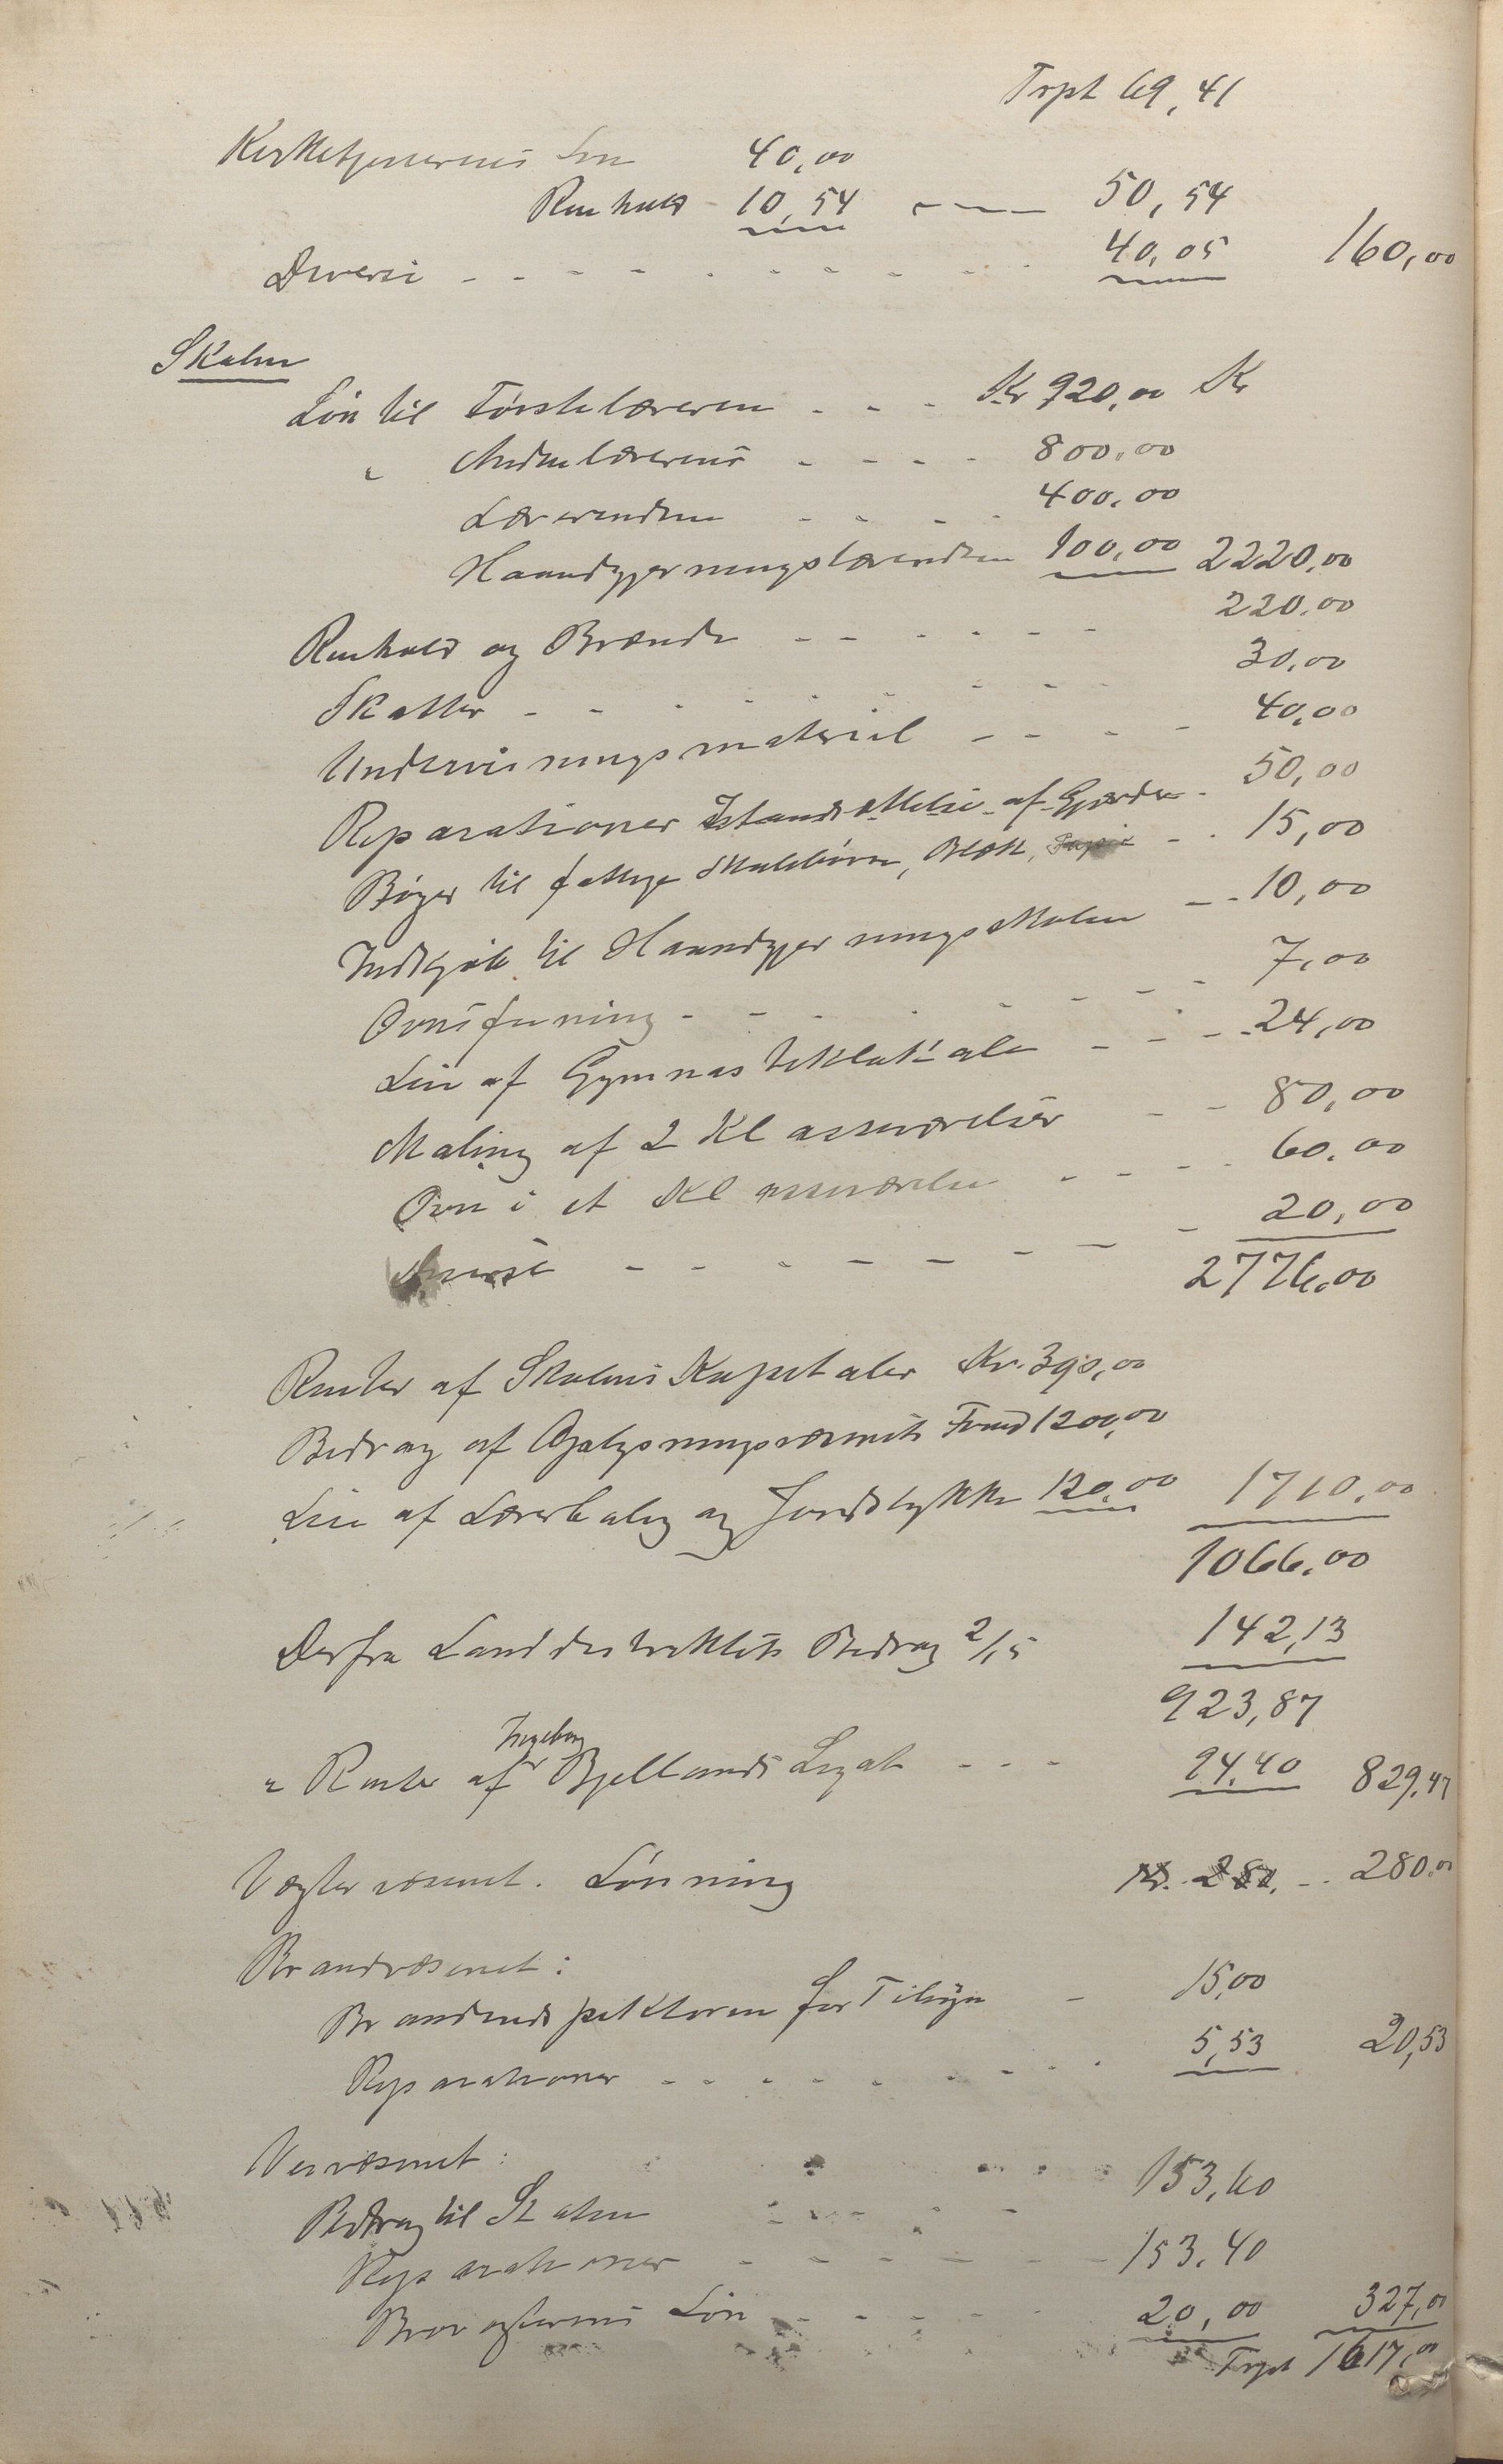 Trpt 69,41
Kirketjenerens Løn 40,00
Renhold - 10,54 - - - 50,54
Diverse - - - - - - - - - 40,05 160,00
Skolen
Løn til Førstelæreren - - - Kr 920,00 Kr
" Andenlærerens - - - - 800,00
Lærerinden - - - - 400,00
Haandgjerningslærerinden 100,00 2220,00
Renhold og Brænde - - - - - - 220,00
Skatter - - - - - - - - 30,00
Undervisningsmateriel - - - - 40,00
Reparationer Istandsættelse af Gjerder - 50,00
Bøger til fattige Skolebørn, Blæk, - - 15,00
Indkjøb til Haandgjerningsskolen - - 10,00
Ovnsfeining - - - - - - - 7,00
Leie af Gymnastiklokale - - - - 24,00
Maling af 2 Klasseværelser - - 80,00
Ovn i et Klasseværelse - - - - 60,00
Diverse - - - - - - - - 20,00
2776,00
Renter af Skolens Kapitaler Kr. 390,00
Bidrag af Oplysningsvæsenets Fond 1200,00
Leie af Lærerbolig og Jordstykke 120,00 1710,00
1066,00
Derfra Landdistriktets Bidrag 2/15 142,13
923,87
Ingeborg
" Renter af Bjellands Legat - - - 94,40 829,47
Vægtervæsenet. Lønning Kr. 280. - - 280,00
Brandvæsenet:
Brandinspektøren for Tilsyn - 15,00
Reparationer - - - - - - - - 5,53 20,53
Veivæsenet:
Bidrag til Staten - - - - - 153,60
Reparationer - - - - - - 153,40
Brovogterens Løn - - - - - 20,00 327,00
Trpt 1617,00